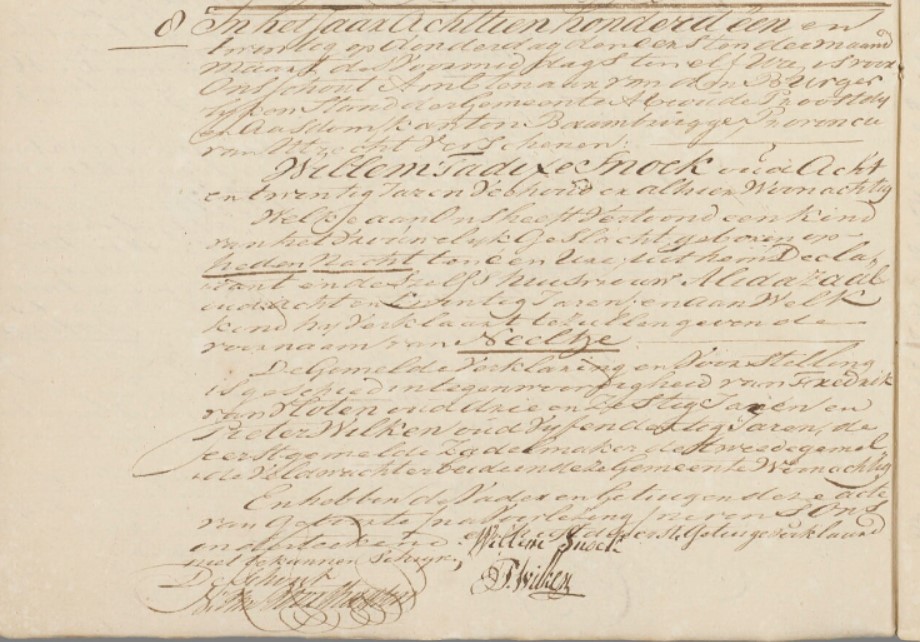 8 In het Jaar Achttien honderd één en
twintig op Donderdag den eersten der maand
Maart des Voormiddags ten elf Ure, is voor
Ons Schout Ambtenaar van den Burger
lyken Stand der Gemeente Abcoude Proostdy
en Aasdom kanton Baambrugge, Provincie
van Utrecht Verschenen:
Willem Snoek oud Acht
en twintig Jaren Veehoud en alhier Woonachtig
Welke aan Ons heeft Vertoond een kind
van het Vrouwelyk Geslacht, geboren op
heden Nacht ten een Ure, uit hem Decla,
rant en deszelfs huisvrouw Alida Zaal
oud acht en Jaren; en aan Welk
kind hy Verklaart te zullen geven de
voornaam van Neeltje
De Gemelde Verklaring en Voorstelling
is geschied in tegenwoordigheid van Fredrik
van Vloten oud drie en Zestig Jaren en
Pieter Wilken oud Vyf en dertig Jaren, de
eerstgemelde Zadelmaker de tweede gemel,
de Veldwachter beide in deze Gemeente Woonachtig
En hebben de Vader en Getuigen deze acte
van Geboorte na Voorlezing nevens Ons
ondertekend de eerste Getuige verklaard
niet te kunnen Schryven,
Willem Snoek
De Schout
P. Wilken